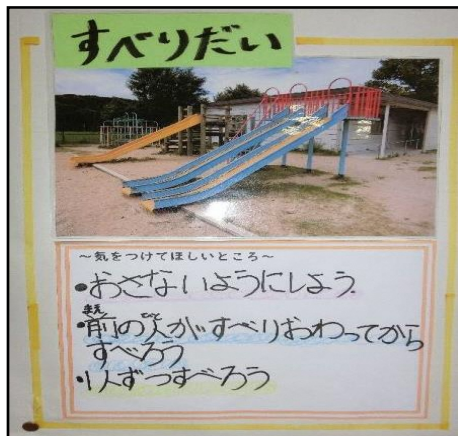 すべりだい
～気をつけてほしいところ～
•おさないようにしよう
•前の人がすべりおわってから
すべろう
•1人ずつすべろう